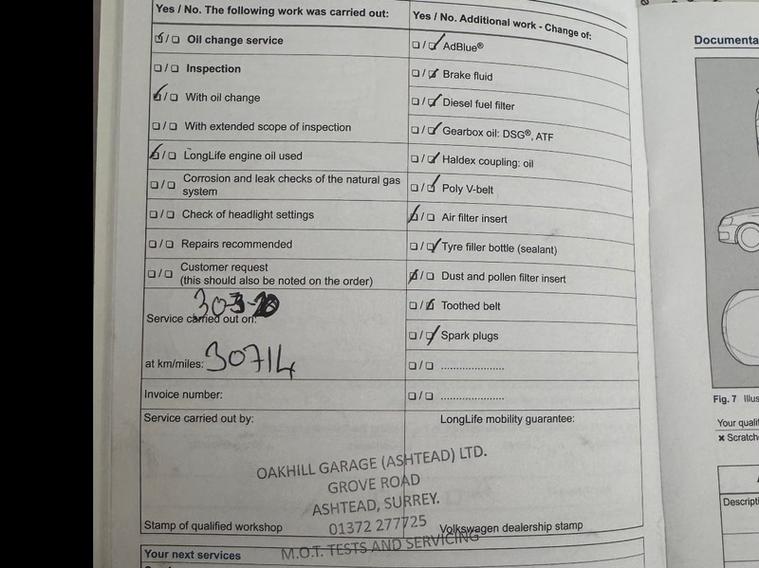 Yes / No. The following work was carried out:
☑/☐ Oil change service
☐/☐ Inspection
☑/☐ With oil change
☐/☐ With extended scope of inspection
☑/☐ LongLife engine oil used
☐/☐ Corrosion and leak checks of the natural gas
system
☐/☐ Check of headlight settings
☐/☐ Repairs recommended
☐/☐ Customer request
(this should also be noted on the order)
30-3-20
Service carried out on:
at km/miles: 30714
Invoice number:
Service carried out by:
Stamp of qualified workshop
Yes / No. Additional work - Change of:
☐/☑ AdBlue®
☐/☑ Brake fluid
☐/☑ Diesel fuel filter
☐/☑ Gearbox oil: DSG®, ATF
☐/☑ Haldex coupling: oil
☐/☑ Poly V-belt
☑/☐ Air filter insert
☐/☑ Tyre filler bottle (sealant)
☑/☐ Dust and pollen filter insert
☐/☑ Toothed belt
☐/☑ Spark plugs
☐/☐ .....................
☐/☐ .....................
LongLife mobility guarantee:
OAKHILL GARAGE (ASHTEAD) LTD.
GROVE ROAD
ASHTEAD, SURREY.
01372 277725
M.O.T. TESTS AND SERVICING
Volkswagen dealership stamp
Your next services
Documenta
Fig. 7 Illus
Your qualif
✖ Scratch
Descripti